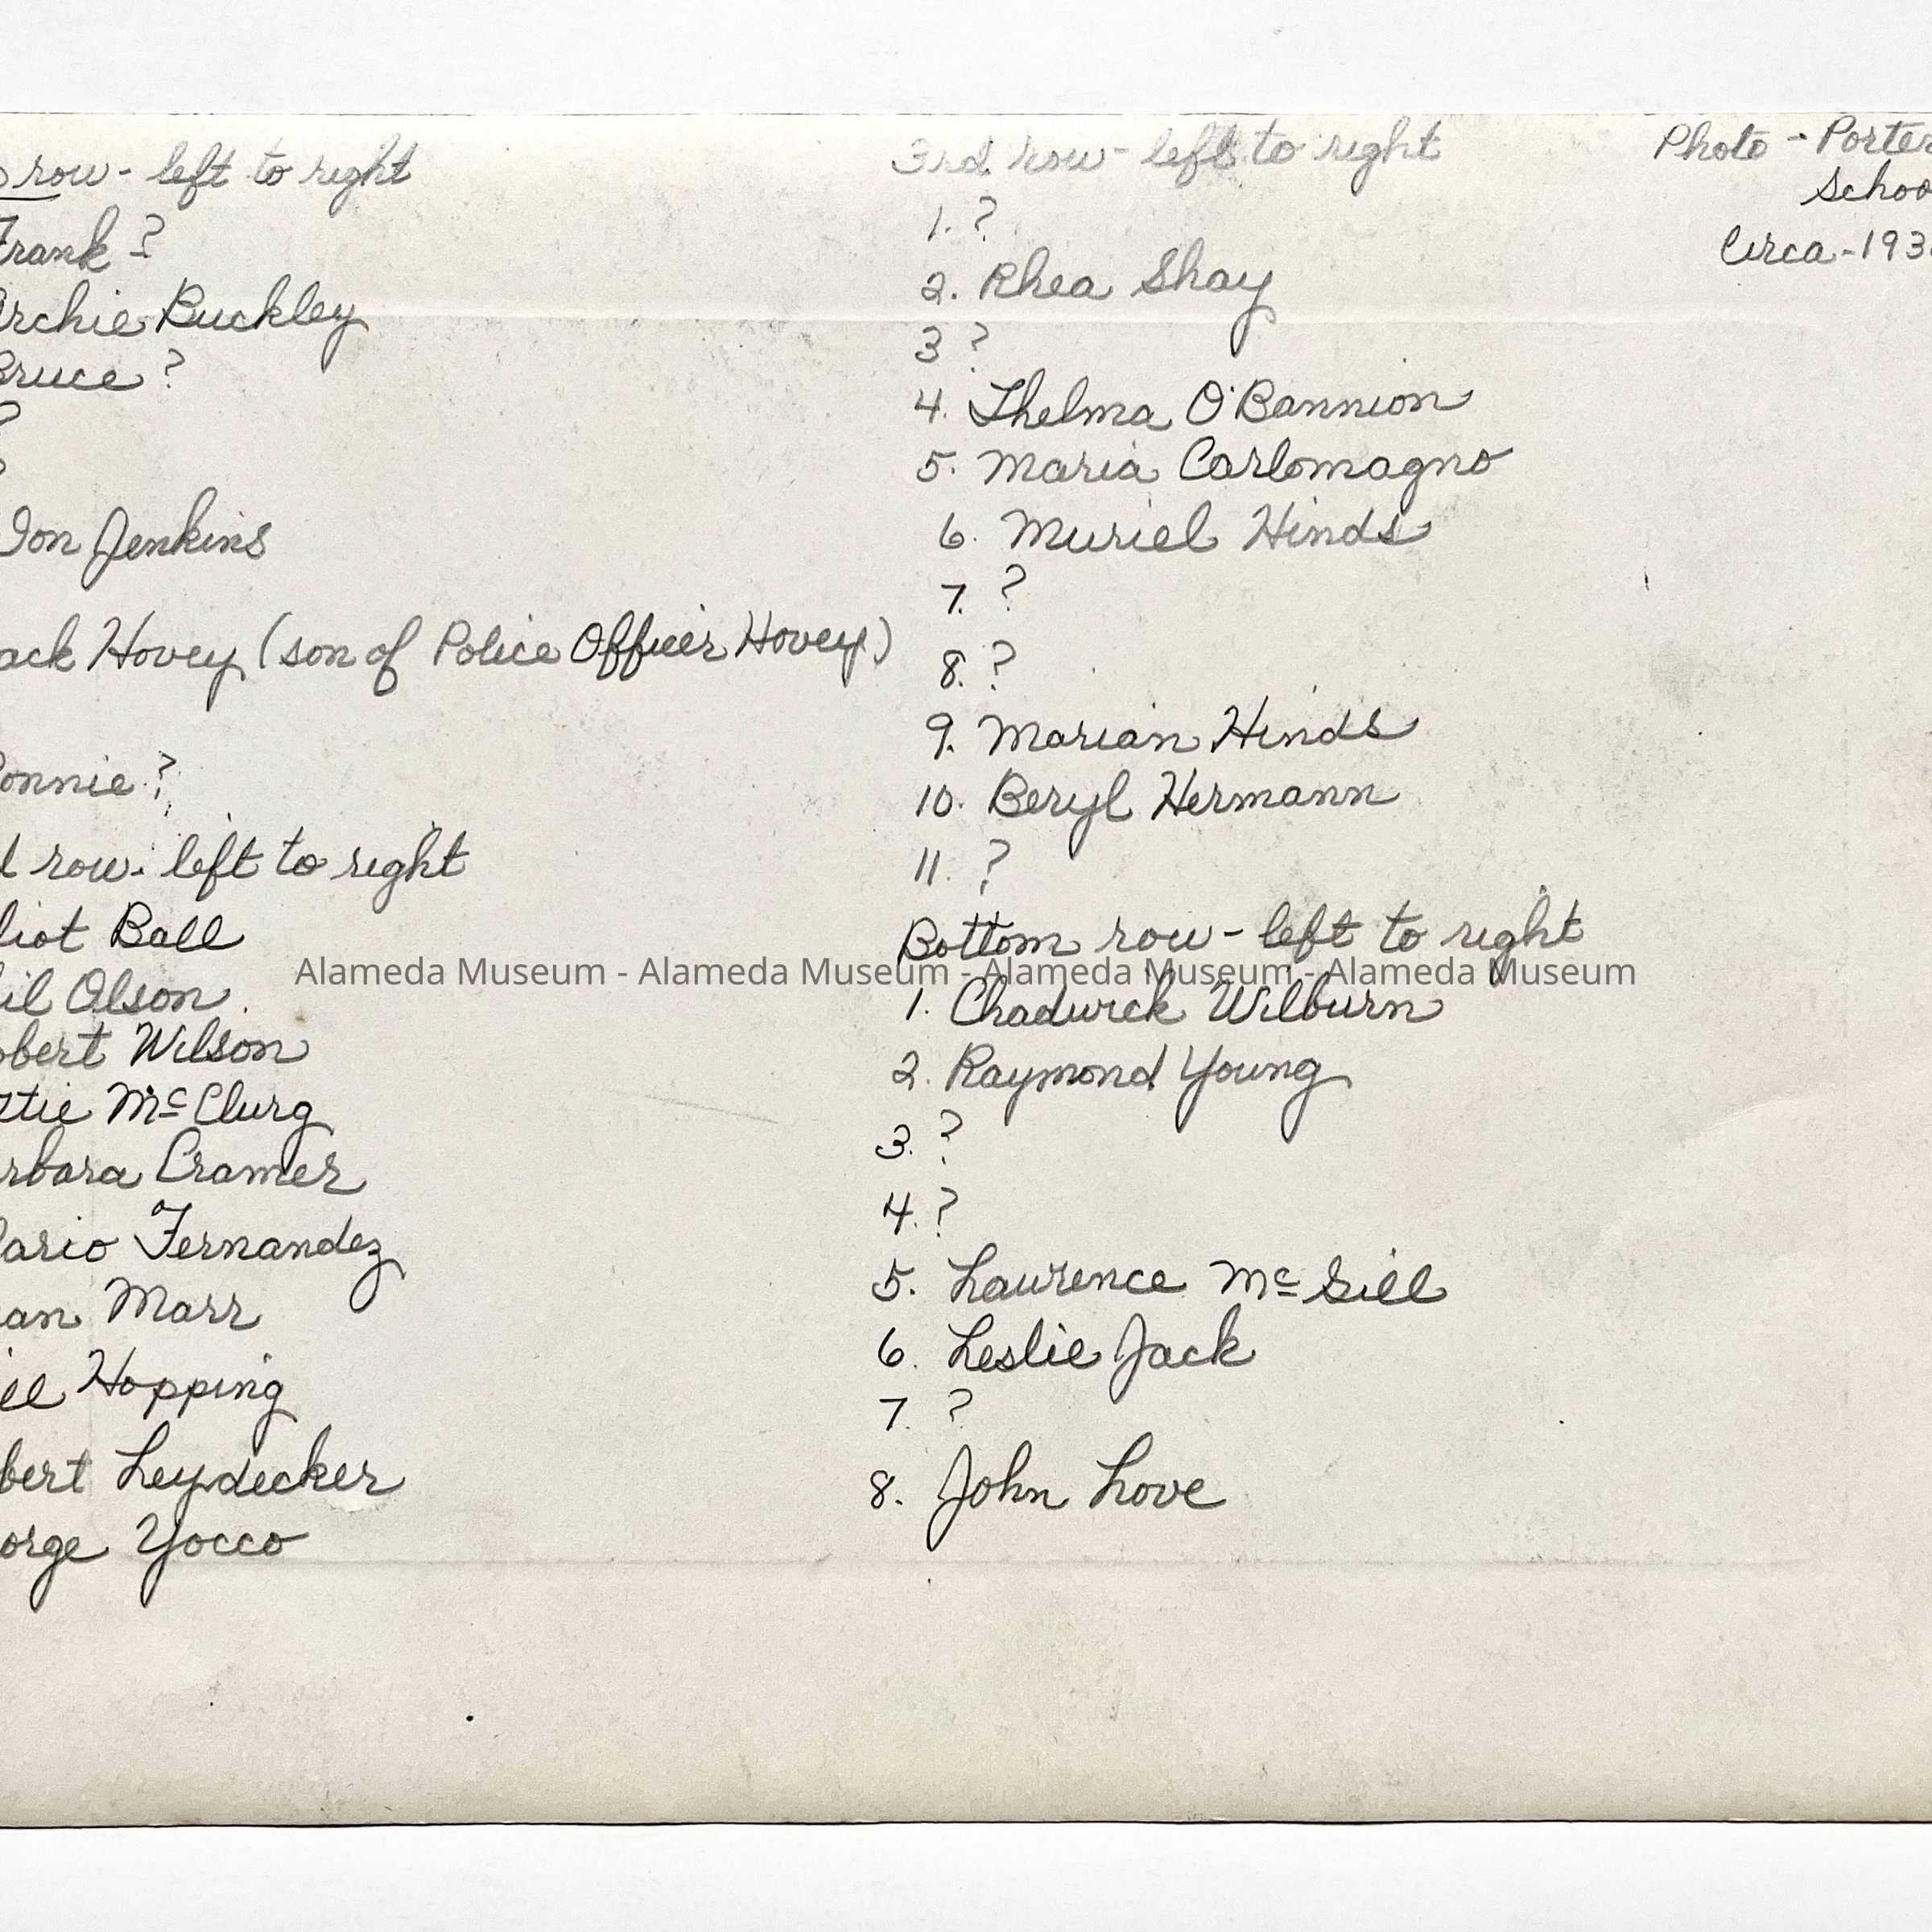 row - left to right
Frank ?
Archie Buckley
Bruce ?
?
?
Jon Jenkins
ack Hovey (son of Police Officer Hovey)
onnie ?
d row - left to right
liot Ball
il Olson
obert Wilson
ttie McClurg
rbara Cramer
ario Fernandez
an Marr
ill Hopping
bert Leydecker
orge Yocco
3rd row - left to right
1. ?
2. Rhea Shay
3 ?
4. Thelma O'Bannion
5. Maria Carlomagno
6. Muriel Hinds
7. ?
8. ?
9. Marian Hinds
10. Beryl Hermann
11. ?
Bottom row - left to right
Alameda Museum - Alameda Museum - Alameda Museum - Alameda Museum
1. Chadwick Wilburn
2. Raymond Young
3. ?
4. ?
5. Laurence McGill
6. Leslie Jack
7. ?
8. John Love
Photo - Porter
Schoo
Circa - 193